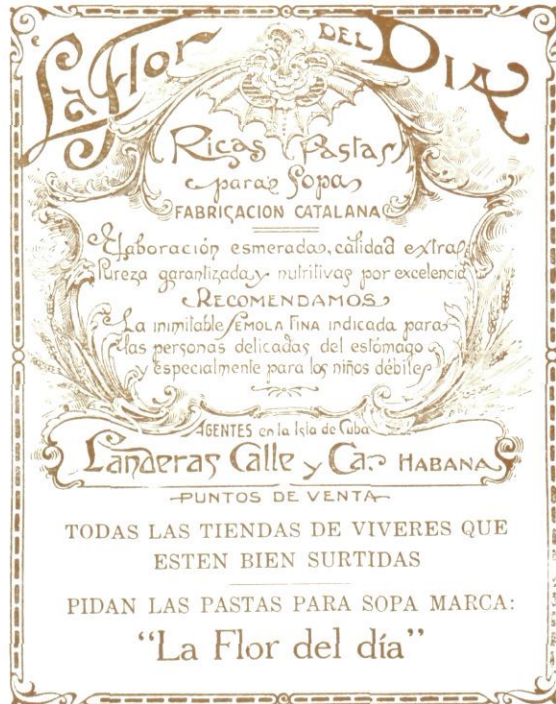 La Flor DEL DIA
Ricas Pastas
para Sopa
FABRICACION CATALANA
Elaboración esmerada, calidad extra,
Pureza garantizada y nutritivas por excelencia
RECOMENDAMOS
La inimitable SÉMOLA FINA indicada para
las personas delicadas del estómago
y especialmente para los niños débiles
AGENTES en la Isla de Cuba
Landeras Calle y Ca. HABANA
PUNTOS DE VENTA
TODAS LAS TIENDAS DE VIVERES QUE
ESTEN BIEN SURTIDAS
PIDAN LAS PASTAS PARA SOPA MARCA:
“La Flor del día”